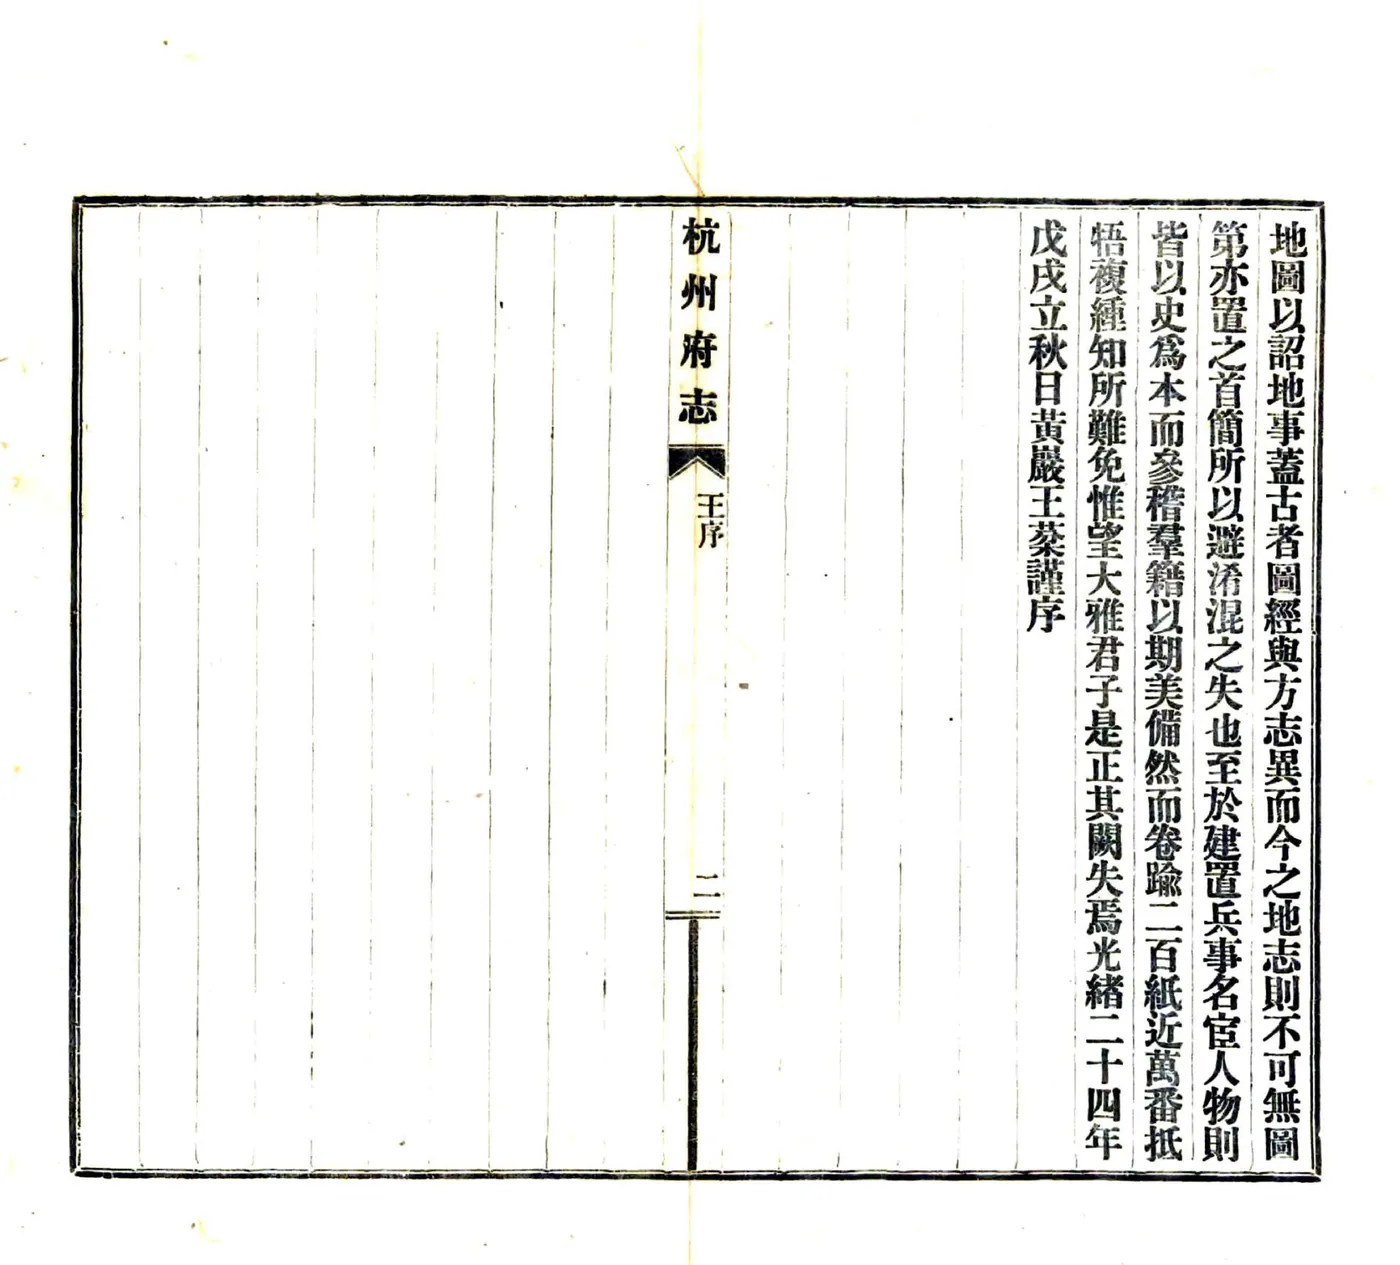 地圖以詔地事蓋古者圖經與方志異而今之地志則不可無圖
第亦置之首簡所以避淆混之失也至於建置兵事名宦人物則
皆以史爲本而參稽羣籍以期美備然而卷踰二百紙近萬番抵
牾複緟知所難免惟望大雅君子是正其闕失焉光緒二十四年
戊戌立秋日黃巖王棻謹序
杭州府志
王序
二